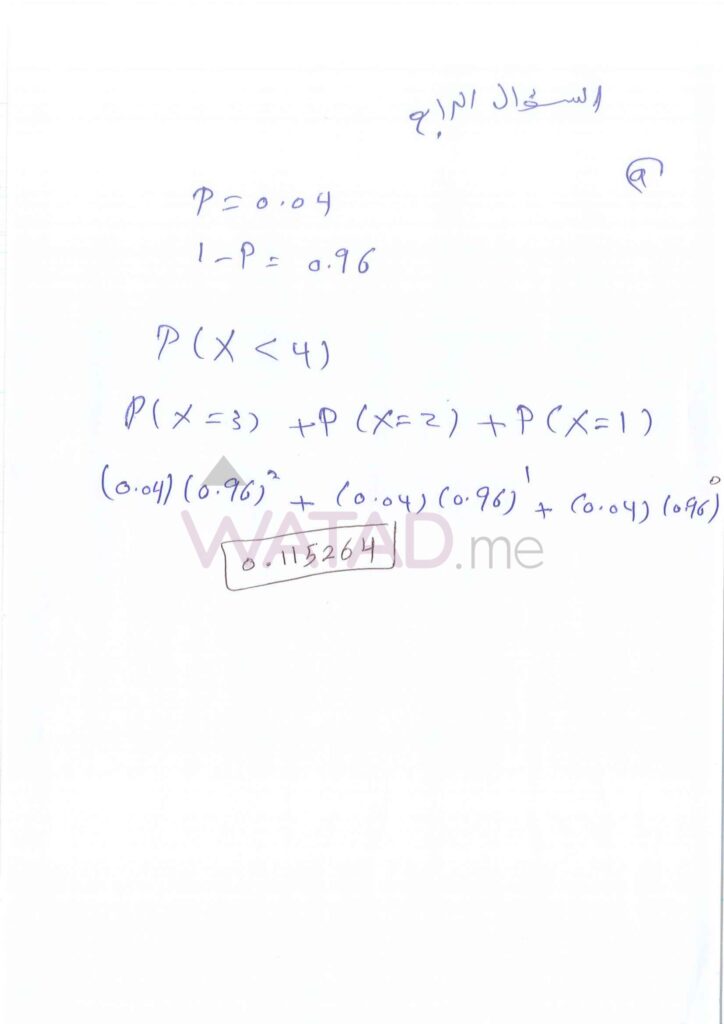 السؤال الرابع
P = 0.04
1 - P = 0.96
P(X < 4)
P(X = 3) + P(X = 2) + P(X = 1)
(0.04)(0.96)² + (0.04)(0.96)¹ + (0.04)(0.96)⁰
0.115264
WATAD.me